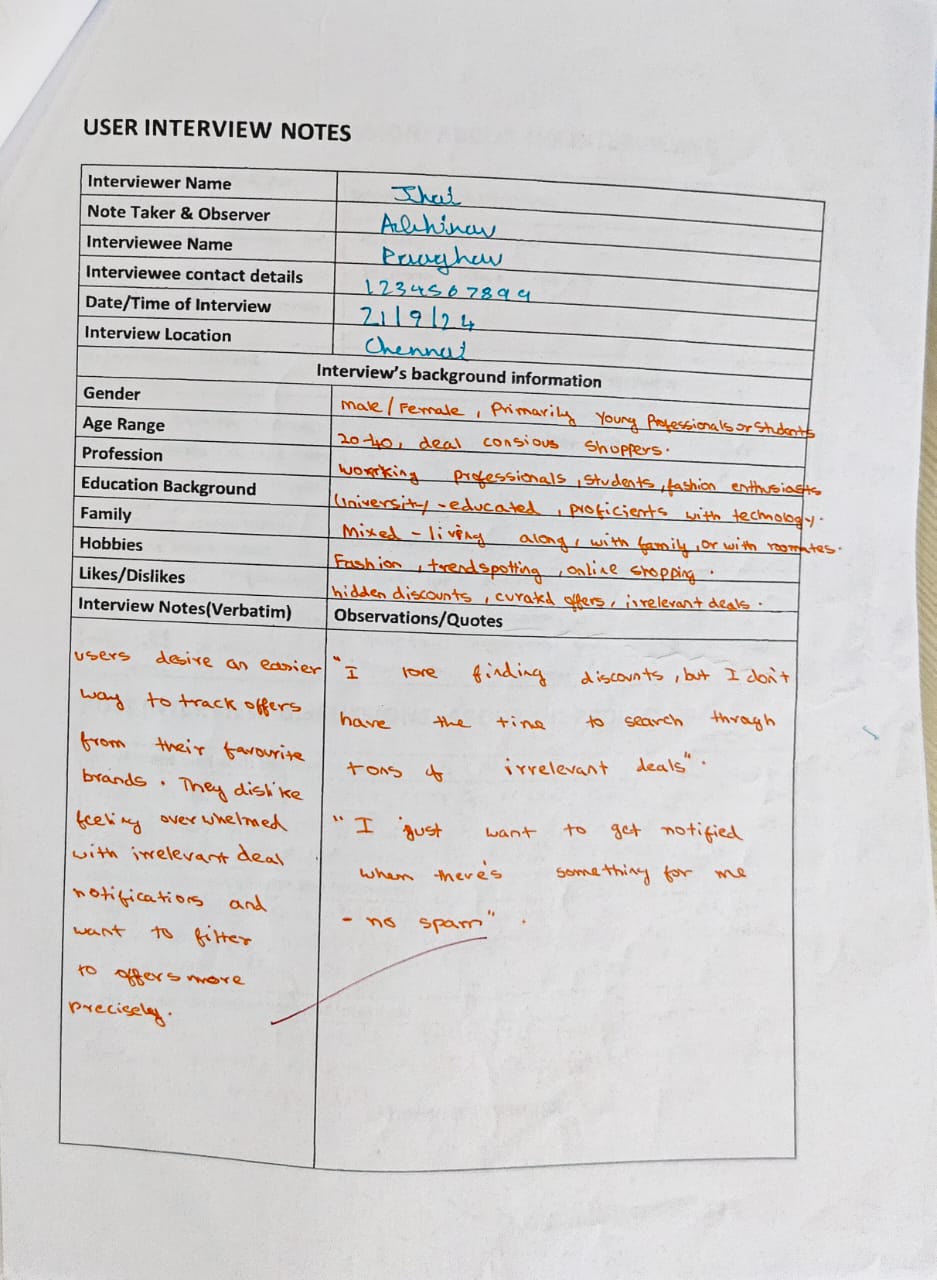 USER INTERVIEW NOTES
Interviewer Name
Note Taker & Observer Abhinav
Interviewee Name
Interviewee contact details 1234567899
Date/Time of Interview 21/9/24
Interview Location Chennai
Interview's background information
Gender male/Female, Primarily Young Professionals or Students
Age Range 20-40, deal consious shoppers.
Profession working professionals, students, fashion enthusiasts
Education Background University-educated, proficients with technology.
Family Mixed-living along, with family, or with roomates.
Hobbies Fashion, trendspotting, online shopping.
Likes/Dislikes hidden discounts, curatd offers, irrelevant deals.
Interview Notes(Verbatim) Observations/Quotes
users desire an easier
way to track offers
from their favourite
brands. They dislike
feeling overwhelmed
with irrelevant deal
notifications and
want to filter
to offers more
precisely.
"I love finding discounts, but I don't
have the time to search through
tons of irrelevant deals".
"I just want to get notified
when there's something for me
- no spam".